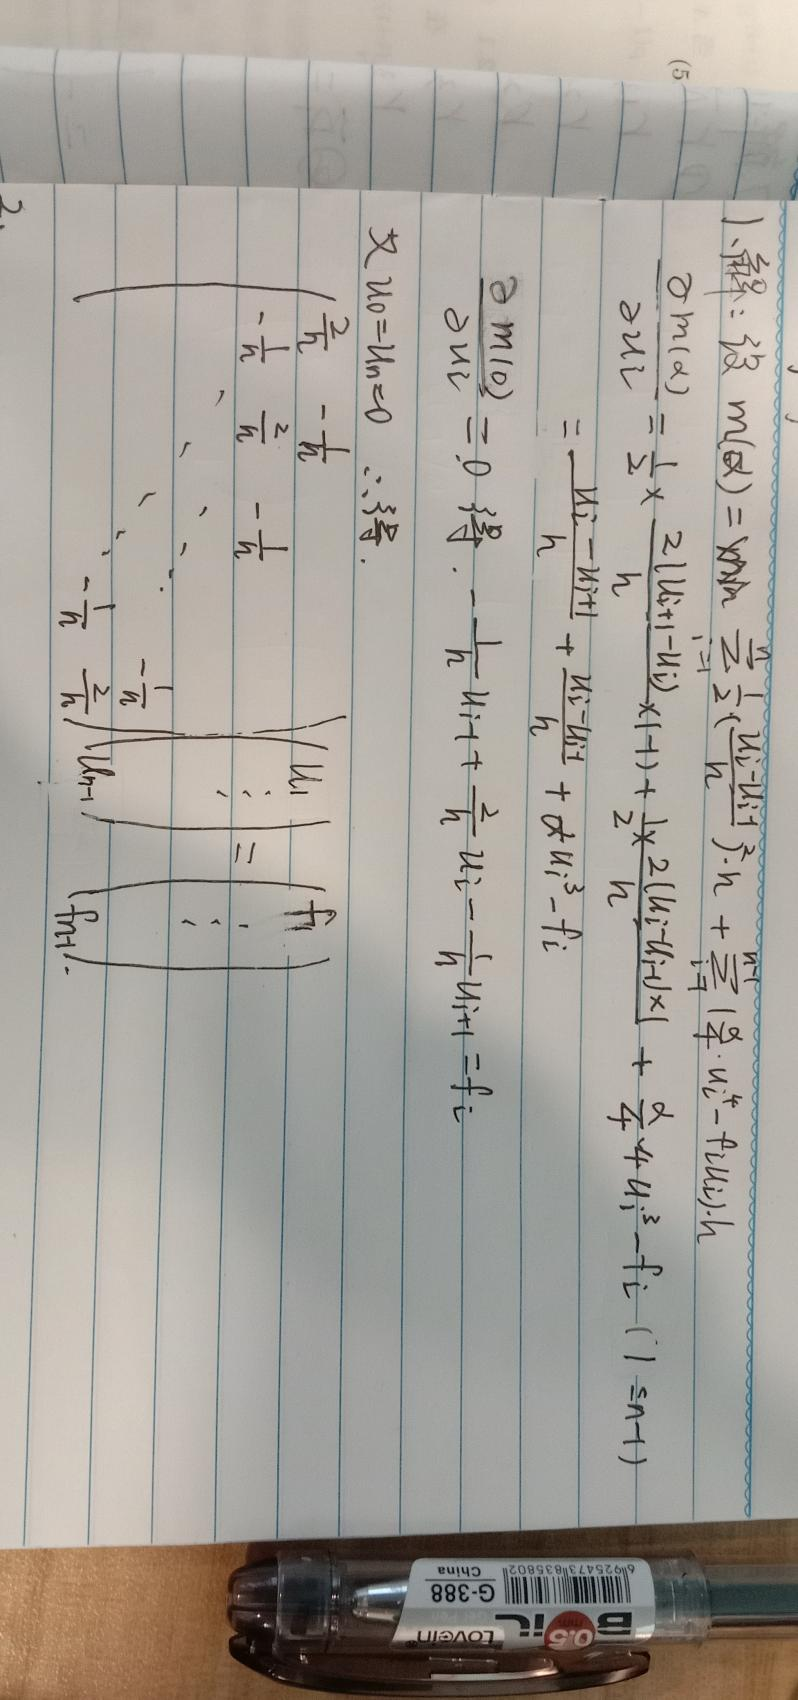 1. 解: 设 m(α) = min Σ_{i=1}^{n} 1/2 ((u_i-u_{i-1})/h)²·h + Σ_{i=1}^{n-1} (α/4·u_i⁴ - f_i u_i)·h
∂m(α)/∂u_i = 1/2 × 2(u_{i+1}-u_i)/h ×(-1) + 1/2 × 2(u_i-u_{i-1})×1/h + α/4 4u_i³ - f_i (1≤n-1)
= u_i-u_{i+1}/h + u_i-u_{i-1}/h + αu_i³ - f_i
∂m(0)/∂u_i = 0 得. -1/h u_{i-1} + 2/h u_i - 1/h u_{i+1} = f_i
又 u_0=u_n=0 ∴得.
( 2/h -1/h
-1/h 2/h -1/h
⋱ ⋱ ⋱
-1/h
-1/h 2/h ) ( u_1 ⋮ u_{n-1} ) = ( f_1 ⋮ f_{n-1} ).
2.
(5
BOiL
0.5
mm
Lovein
G-388
China
6925473835802